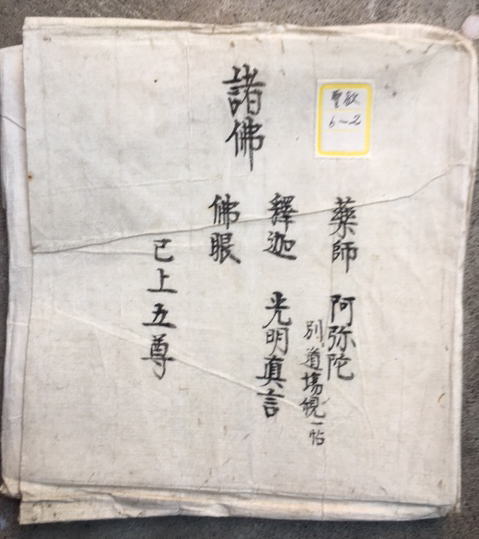 諸佛
聖教
6-2
薬師 阿弥陀
別道場観一帖
釋迦 光明真言
佛眼
已上五尊